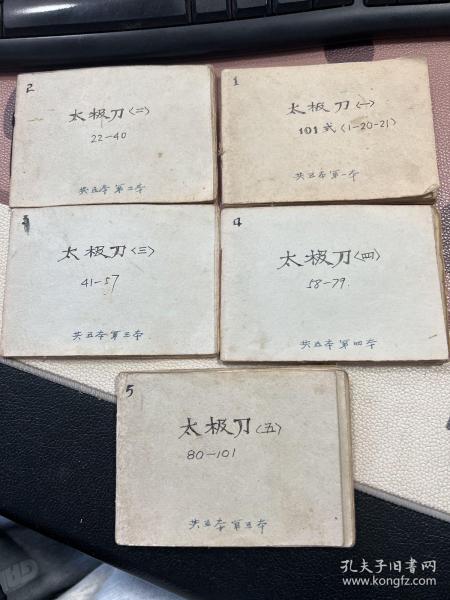 2
太极刀〈二〉
22-40
共五本第二本
1
太极刀〈一〉
101式〈1-20-21〉
共五本第一本
3
太极刀〈三〉
41-57
共五本第三本
4
太极刀〈四〉
58-79.
共五本第四本
5
太极刀〈五〉
80-101
共五本第五本
孔夫子旧书网
www.kongfz.com